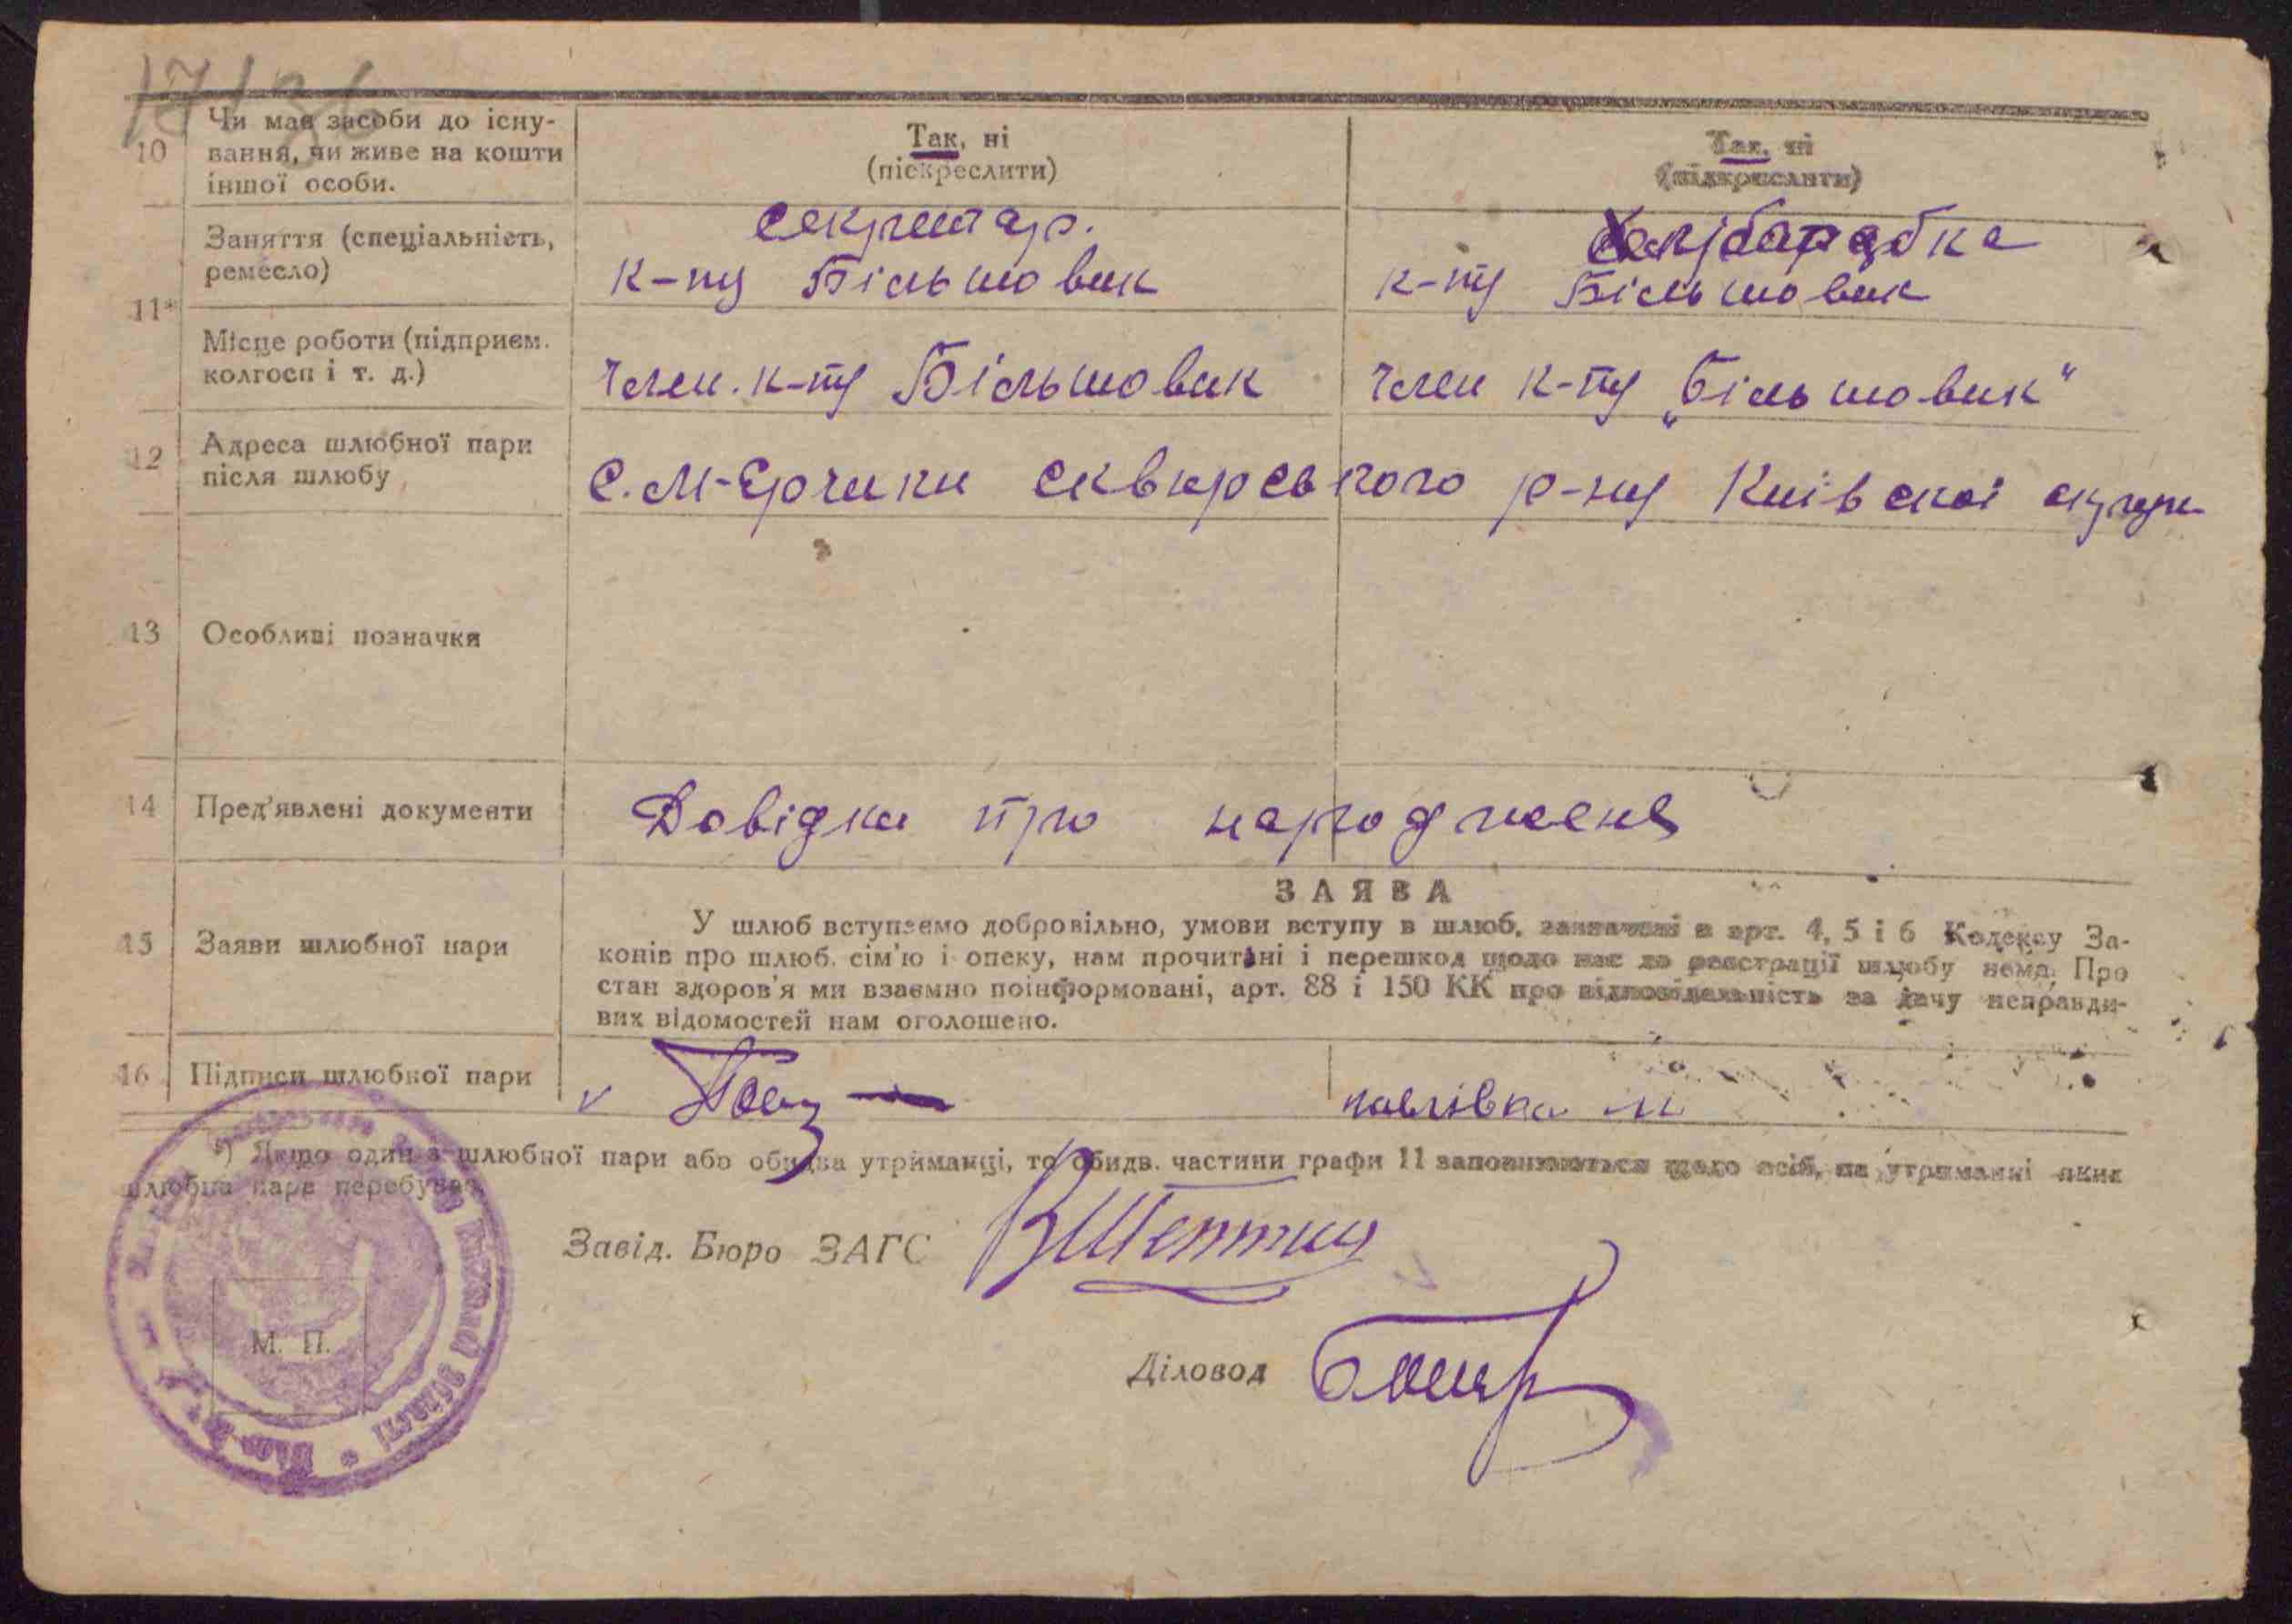 17 136
10 Чи має засоби до існу-
вання, чи живе на кошти
іншої особи.
Так, ні
(піскреслити)
Так, ні
(підкреслити)
11*
Заняття (спеціальність,
ремесло)
секретар.
к-пу Більшовик
Хліборобка
к-пу Більшовик
Місце роботи (підприєм.
колгосп і т. д.)
член. к-пу Більшовик
член к-пу „Більшовик"
12 Адреса шлюбної пари
після шлюбу
С. М-Єрчики Сквирського р-ну Київскої
13 Особливі позначки
14 Пред'явлені документи
Довідка про народження
15 Заяви шлюбної пари
ЗАЯВА
У шлюб вступаємо добровільно, умови вступу в шлюб, зазначені в арт. 4, 5 і 6 Кодексу За-
конів про шлюб. сім'ю і опеку, нам прочитані і перешкод щодо нас до реєстрації шлюбу нема. Про
стан здоров'я ми взаємно поінформовані, арт. 88 і 150 КК про відповідальність за дачу неправди-
вих відомостей нам оголошено.
16 Підписи шлюбної пари
павлівка м
*) Якщо один з шлюбної пари або обидва утриманці, то обидв. частини графи 11 заповнюються щодо осіб, на утриманні яких
шлюбна пара перебуває.
Завід. Бюро ЗАГС
Діловод
М. П.